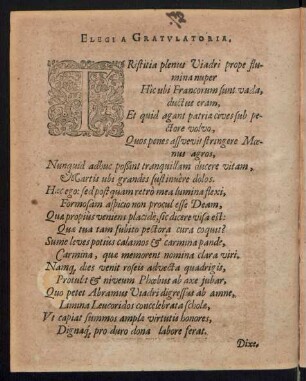 ELEGIA GRATVLATORIA.
TRistitia plenus Viadri prope flu-
mina nuper
Hic ubi Francorum sunt vada,
ductus eram,
Et quid agant patria cives sub pe-
ctore volvo,
Quos penes assvevit stringere Mœ-
nus agros,
Nunquid adhuc possint tranquillam ducere vitam,
Martis ubi grandes sustinuere dolos.
Hæc ego: sed postquam retrò mea lumina flexi,
Formosam aspicio non procul esse Deam,
Quæ propius veniens placidè, sic dicere visa est:
Qua tua tam subito pectora cura coquit?
Sume leves potius calamos & carmina pande,
Carmina, quæ memorent nomina clara viri.
Namq, dies venit roseis advecta quadrigis,
Protulit & niveum Phœbus ab axe jubar,
Quo petet Abramus Viadri digressus ab amne,
Lumina Leucoridos concelebrata scholæ,
Vt capiat summos ampla virtutis honores,
Dignaq, pro duro dona labore ferat.
Dixe.